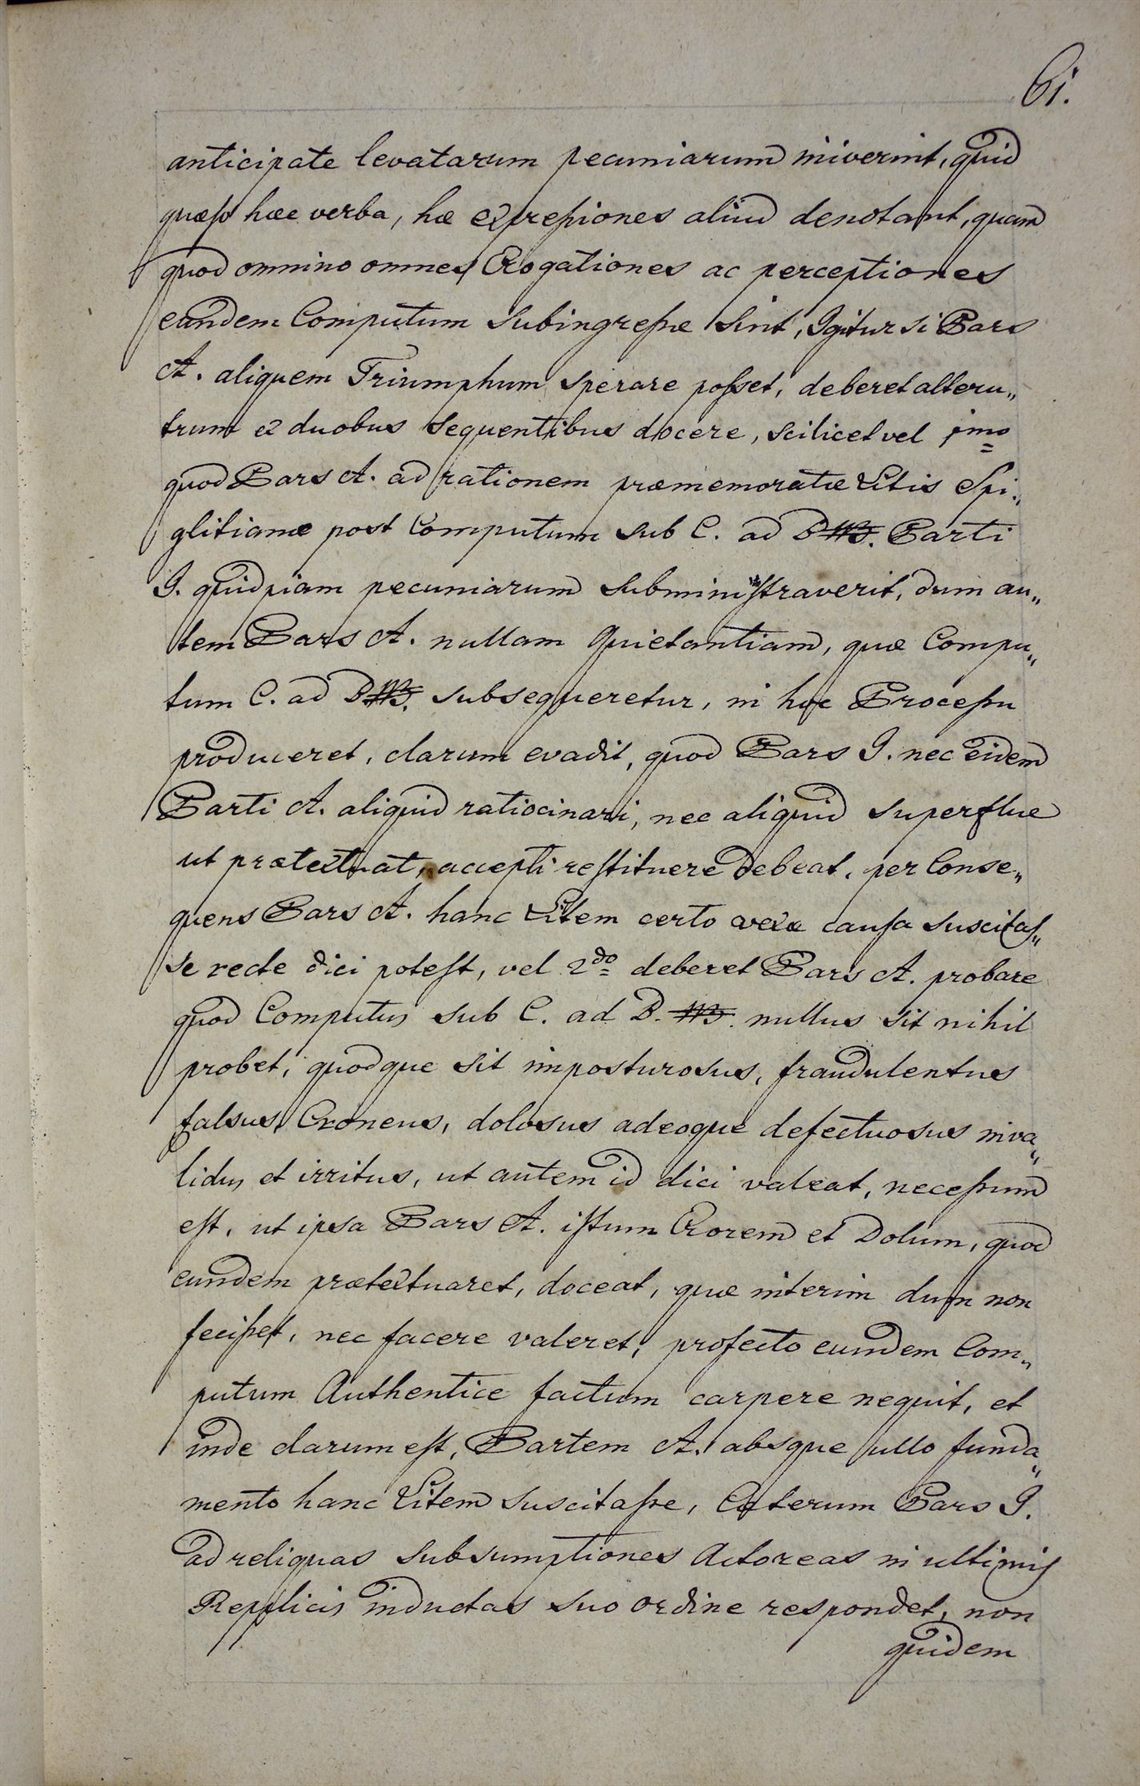 61.
anticipate levatarum pecuniarum iniverint, quid
quæso hæc verba, hæ expressiones aliud denotant, quam
quod omnino omnes Erogationes ac perceptiones
eandem Computum subingressæ sint, Igitur si Pars
A. aliquem Triumphum sperare posset, deberet alteru„
trum ex duobus sequentibus docere, scilicet vel 1mo
quod Pars A. ad rationem præmemoratæ Litis Spi„
glitianæ post Computum sub C. ad D Parti
I. quidpiam pecuniarum subministraverit, dum au„
tem Pars A. nullam Quietantiam, quæ Compu„
tum C. ad D subsequeretur, in hoc Processu
produceret, clarum evadit, quod Pars I. nec eidem
Parti A. aliquid ratiocinari, nec aliquid superflue
ut prætextuat, accepti restituere debeat, per Conse„
quens Pars A. hanc Litem certo vexæ causa suscitas„
se recte dici potest, vel 2do deberet Pars A. probare
quod Computus sub C. ad D. nullus sit nihil
probet, quodque sit imposturosus, fraudulentus
falsus, Erroneus, dolosus adeoque defectuosus inva„
lidus et irritus, ut autem id dici valeat, necessum
est, ut ipsa Pars A. istum Errorem et Dolum, quod
eundem prætextuaret, doceat, quæ interim dum non
fecisset, nec facere valeret, profecto eundem Com„
putum Authentice factum carpere nequit, et
inde clarum est, Partem A. absque ullo funda„
mento hanc Litem suscitasse, Cæterum Pars I.
ad reliquas subsumptiones Actoreas in ultimis
Replicis inductas suo ordine respondet, non
quidem